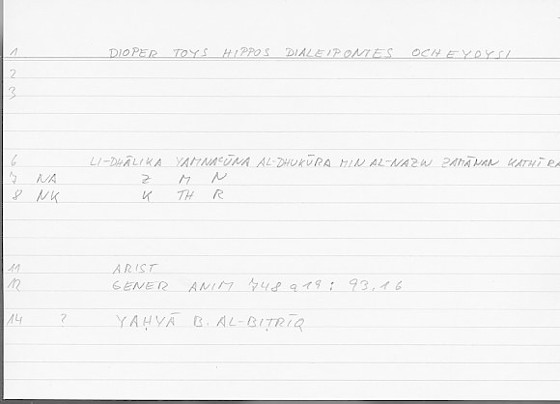 1 DIOPER TOYS HIPPOS DIALEIPONTES OCHEYOYSI
2
3
6 LI-DHĀLIKA YAMNAʿŪNA AL-DHUKŪRA MIN AL-NAZW ZAMĀNAN KATHĪRA
7 NA Z M N
8 NK K TH R
11 ARIST
12 GENER ANIM 748 a 19 : 93.16
14 ? YAḤYĀ B. AL-BIṬRĪQ